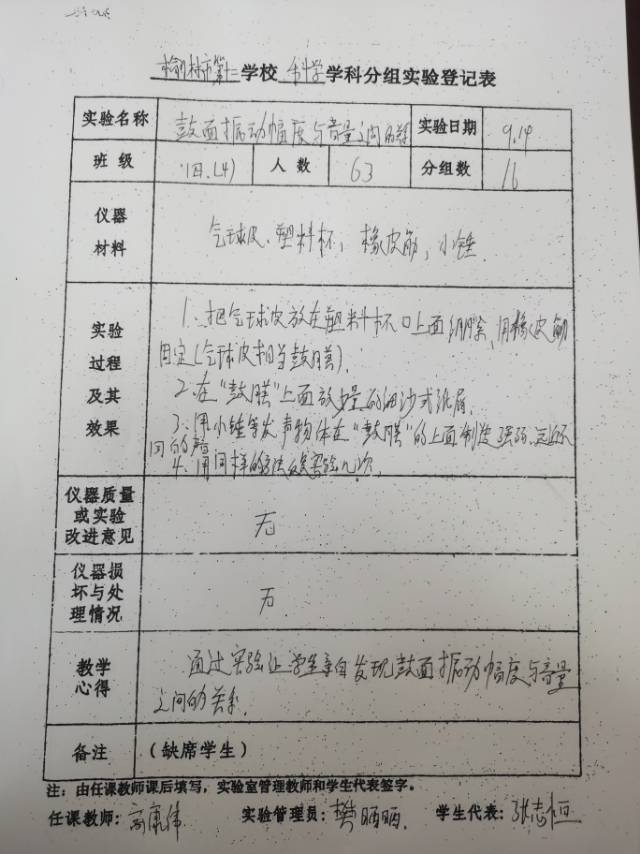 榆林市第十二学校 科学学科分组实验登记表
实验名称 鼓面振动幅度与音量之间的关系 实验日期 9.14
班 级 四.(4) 人 数 63 分组数 16
仪器
材料
气球皮、塑料杯、橡皮筋、小锤.
实验
过程
及其
效果
1、把气球皮放在塑料杯口上面绷紧,用橡皮筋
固定(气球皮相当鼓膜).
2.在"鼓膜"上面放少量的细沙或纸屑.
3、用小锤等发声物体在"鼓膜"的上面制造强弱、远近不
同的声
4、用同样的方法反复实验几次.
仪器质量
或实验
改进意见
无
仪器损
坏与处
理情况
无
教学
心得
通过实验让学生亲自发现鼓面振动幅度与音量
之间的关系.
备注 (缺席学生)
注:由任课教师课后填写,实验室管理教师和学生代表签字。
任课教师: 实验管理员:樊晒晒. 学生代表:张志恒